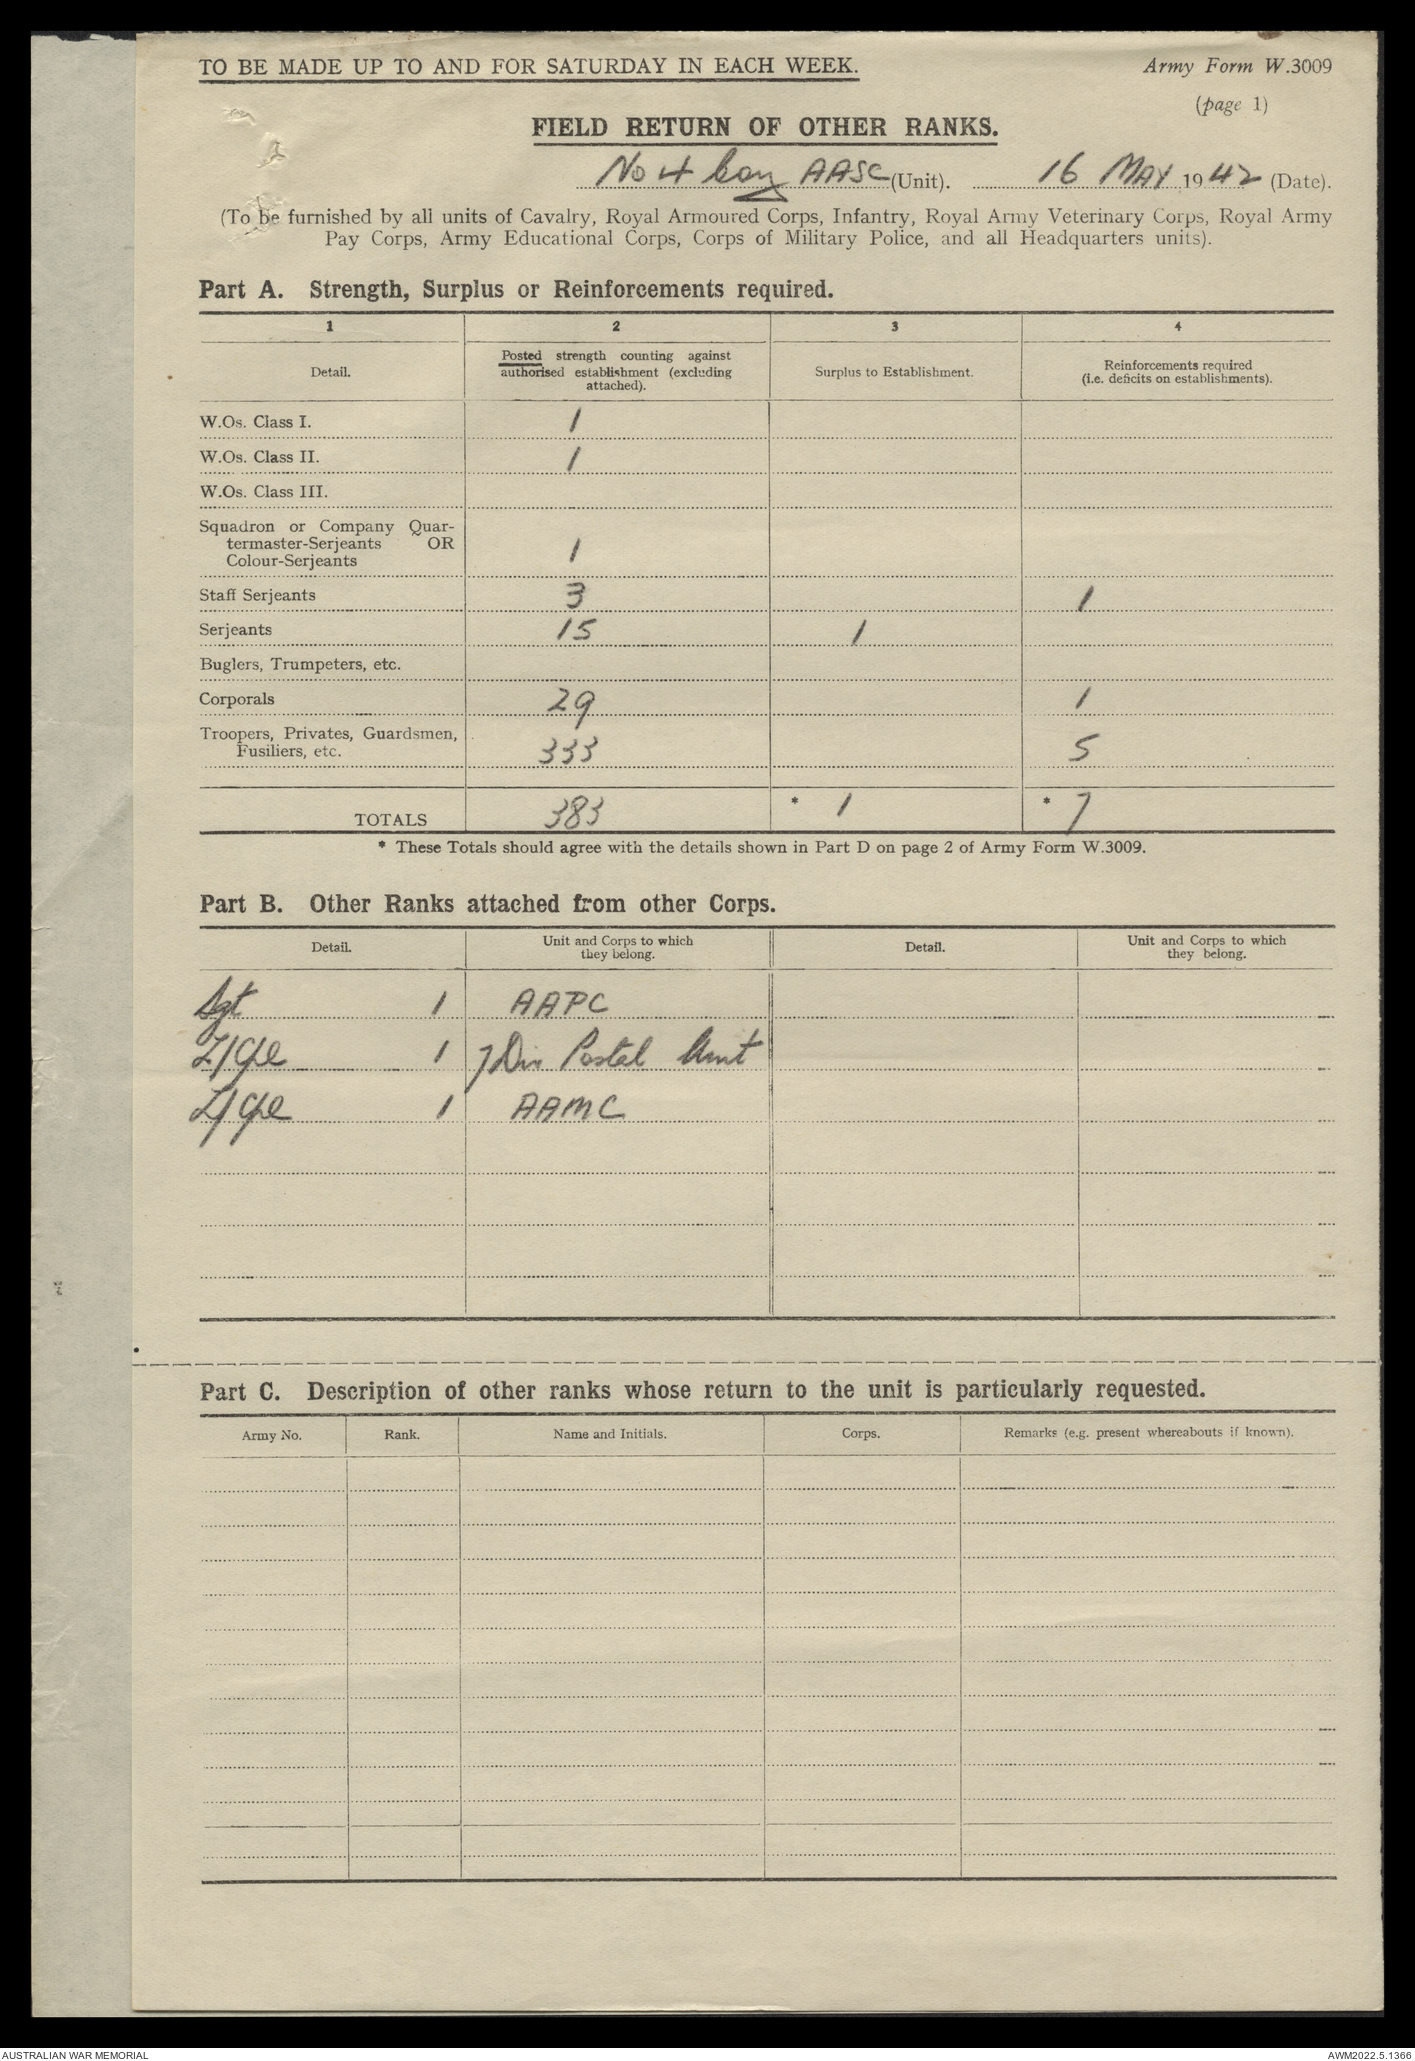 TO BE MADE UP TO AND FOR SATURDAY IN EACH WEEK.
Army Form W.3009
(page 1)
FIELD RETURN OF OTHER RANKS.
No 4 Coy AASC (Unit). 16 MAY 1942 (Date).
(To be furnished by all units of Cavalry, Royal Armoured Corps, Infantry, Royal Army Veterinary Corps, Royal Army
Pay Corps, Army Educational Corps, Corps of Military Police, and all Headquarters units).
Part A. Strength, Surplus or Reinforcements required.
1 2 3 4
Detail.
Posted strength counting against
authorised establishment (excluding
attached).
Surplus to Establishment.
Reinforcements required
(i.e. deficits on establishments).
W.Os. Class I. 1
W.Os. Class II. 1
W.Os. Class III.
Squadron or Company Quar-
termaster-Serjeants OR
Colour-Serjeants 1
Staff Serjeants 3 1
Serjeants 15 1
Buglers, Trumpeters, etc.
Corporals 29 1
Troopers, Privates, Guardsmen,
Fusiliers, etc. 333 5
TOTALS 383 * 1 * 7
* These Totals should agree with the details shown in Part D on page 2 of Army Form W.3009.
Part B. Other Ranks attached from other Corps.
Detail.
Unit and Corps to which
they belong.
Detail.
Unit and Corps to which
they belong.
Sgt 1 AAPC
L/Cpl 1 7 Div Postal Unit
L/Cpl 1 AAMC
Part C. Description of other ranks whose return to the unit is particularly requested.
Army No. Rank. Name and Initials. Corps. Remarks (e.g. present whereabouts if known).
AUSTRALIAN WAR MEMORIAL
AWM2022.5.1366